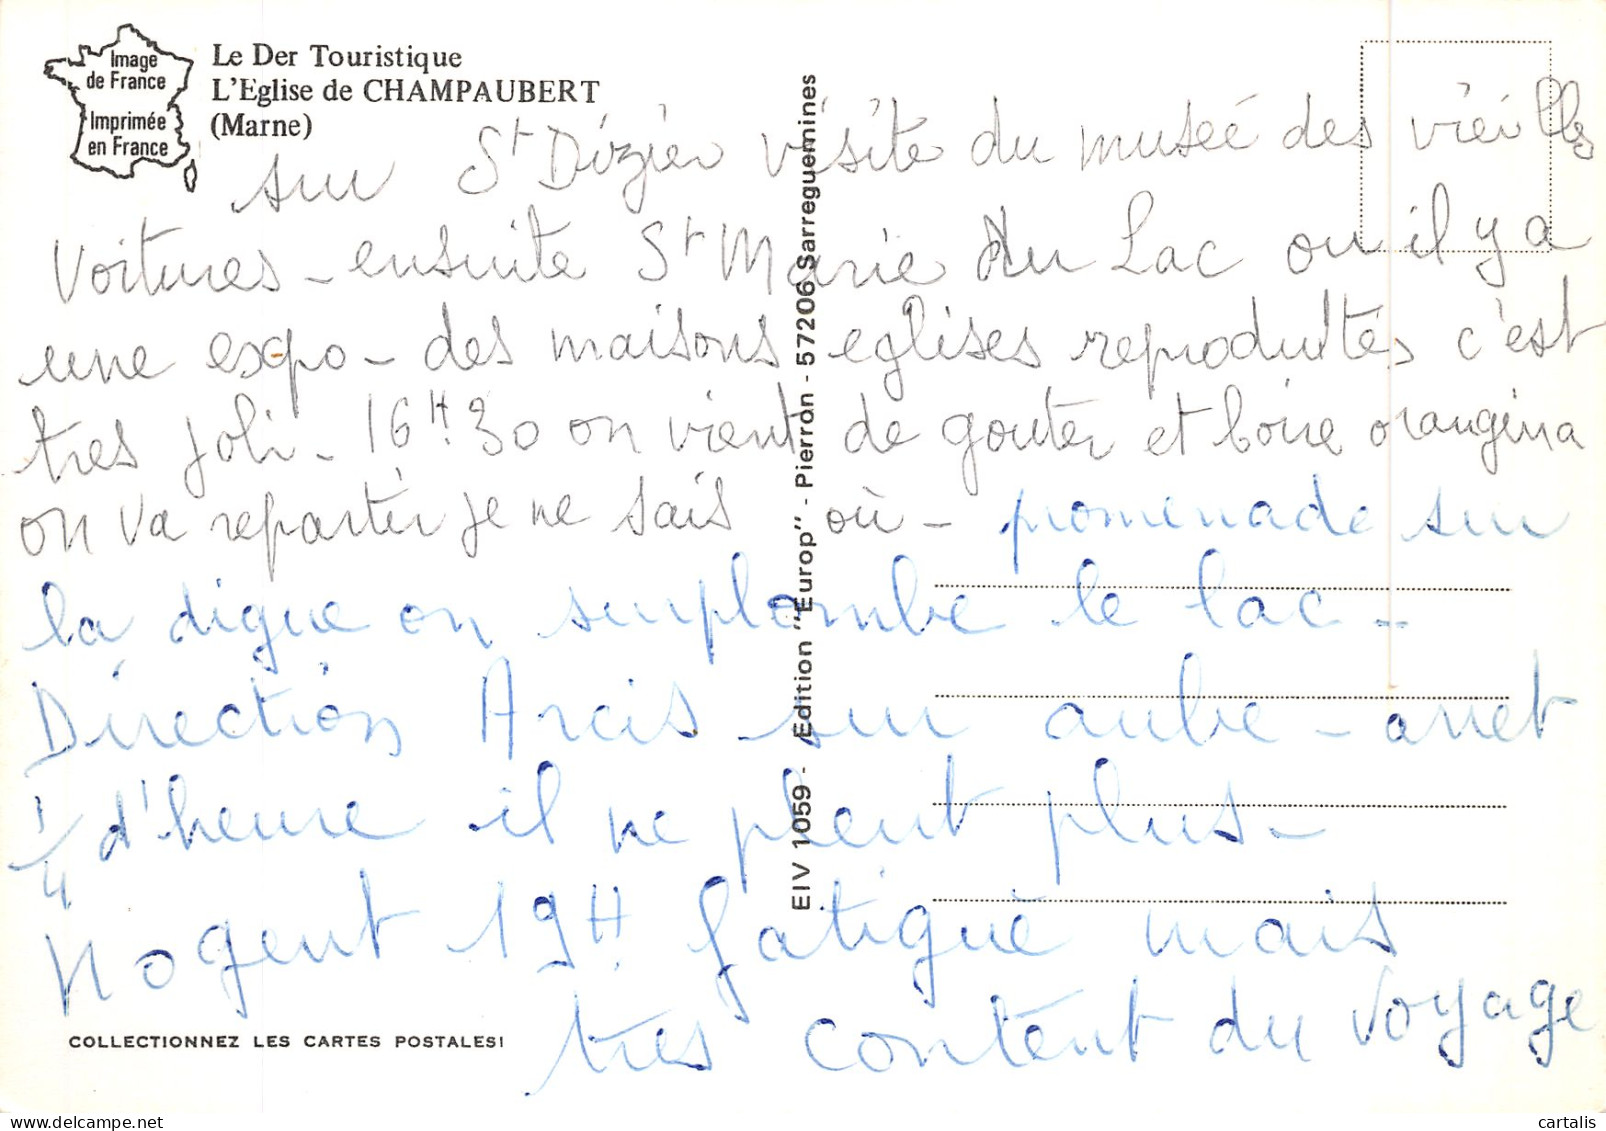 Image
de France
Imprimée
en France
Le Der Touristique
L'Eglise de CHAMPAUBERT
(Marne)
sur St Dizier visite du museé des vieilles
voitures - ensuite St Marie du Lac ou il y a
une expo - des maisons eglises reproduites c'est
tres joli - 16H.30 on vient de gouter et boire orangina
on va repartir je ne sais où - promenade sur
la digue on surplombe le lac -
Direction Arcis sur aube - arret
1/4 d'heure il ne pleut plus -
Nogent 19H fatigué mais
tres content du voyage
EIV 1059 - Edition "Europ" - Pierron - 57206 Sarreguemines
COLLECTIONNEZ LES CARTES POSTALES!
cartalis